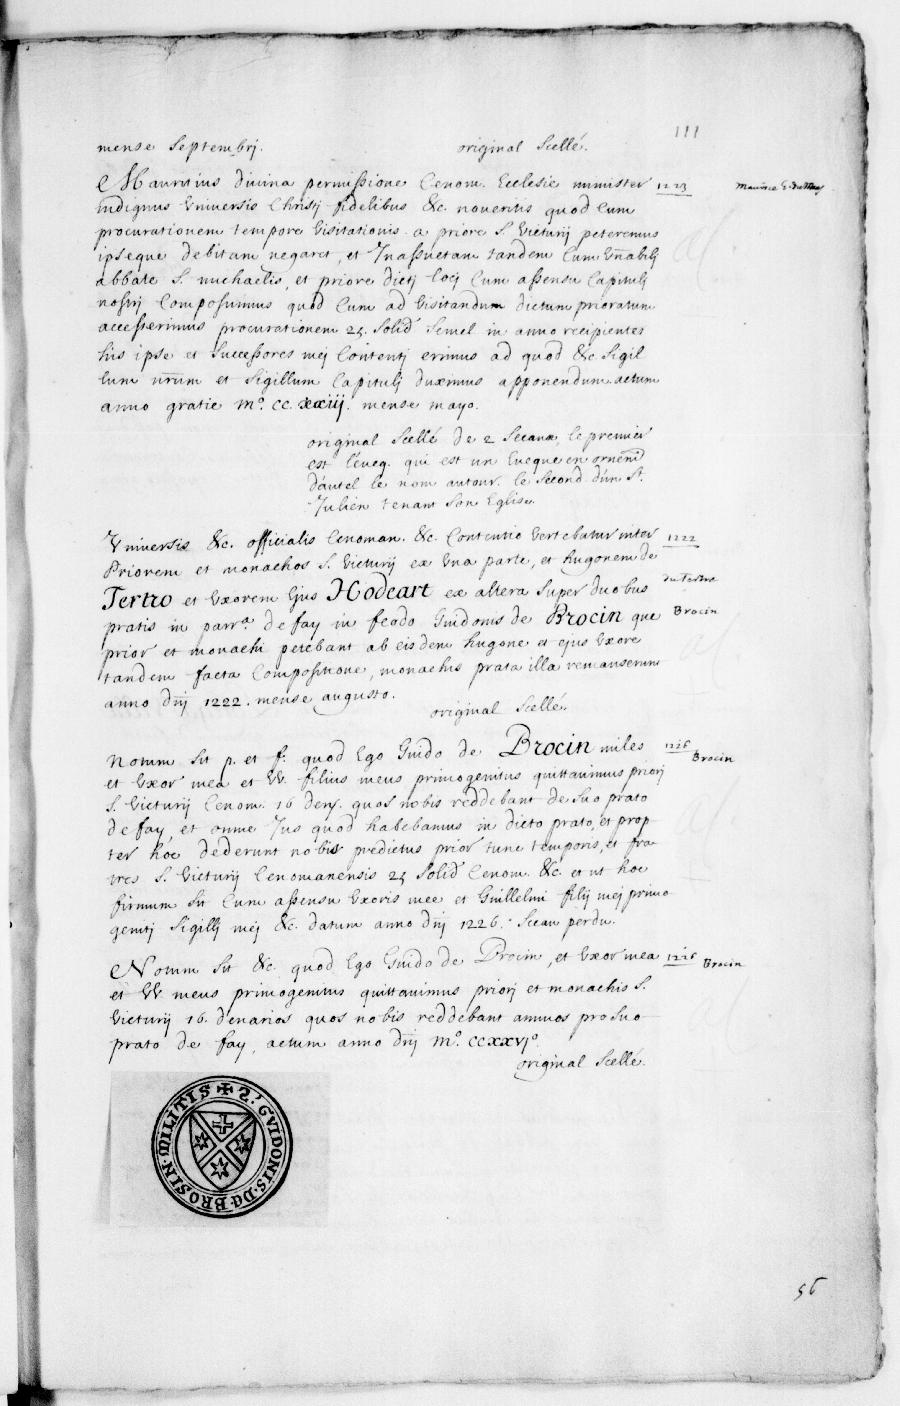 111
mense Septembrj. original Scellé.
Mauritius divina permissione Cenom. Ecclesie minister 1223
indignus Vniversis Christj fidelibus &c. noveritis quod Cum
procurationem tempore Visitationis a priore S. Victurij peteremus
ipseque debitam negaret, et Inassuetam tandem Cum Vnabilj
abbate S. michaelis, et priore dictj locj Cum assensu Capitulj
nostrj Composuimus quod Cum ad Visitandum dictum prioratum
accesserimus procurationem 25 Solid Semel in anno recipientes
his ipse et Successores mej Contentj erimus ad quod &c Sigil
lum nrum et Sigillum Capitulj duximus apponendum. actum
anno gratie m°. CC. xxiij. mense mayo.
original Scellé de 2 Sceaux, le premier
est l'eveq. qui est un Eveque en ornem
d'autel le nom autour. le Second d'un St.
Julien tenant Son Eglise.
Vniversis &c. officialis Cenoman. &c. Contentio Vertebatur inter 1222
Priorem et monachos S. Victurij ex Vna parte, et hugonem de
Tertro et Vxorem Ejus Hodeart ex altera Super duobus du Tertre
pratis in parra. de fay in feodo Guidonis de Brocin que Brocin
prior et monachi petebant ab eisdem hugone et ejus Vxore
tandem facta Compositione, monachis prata illa remanserunt
anno dnj 1222. mense augusto.
original Scellé.
Notum Sit p. et f. quod Ego Guido de Brocin miles 1226 Brocin
et Vxor mea et W filius meus primogenitus quittavimus priorj
S. Victurij Cenom. 16 den. quos nobis reddebant de Suo prato
de fay, et omne Jus quod habebamus in dicto prato, et prop
ter hoc dederunt nobis predictus prior tunc temporis, et fra
tres S. Victurij Cenomanensis 25 Solid Cenom. &c. et ut hoc
firmum Sit Cum assensu Vxoris mee et Guillelmi filij mej primo
genitj Sigillj mej &c. datum anno dnj 1226. Sceau perdu.
Notum Sit &c. quod Ego Guido de Brocin, et Vxor mea 1226 Brocin
et W meus primogenitus quittavimus priorj et monachis S.
Victurij 16. denarios quos nobis reddebant annuos pro Suo
prato de fay, actum anno dnj m°. CCxxvj°.
original Scellé.
✠ S' GVIDONIS. DE. BROSIN. MILITIS
56